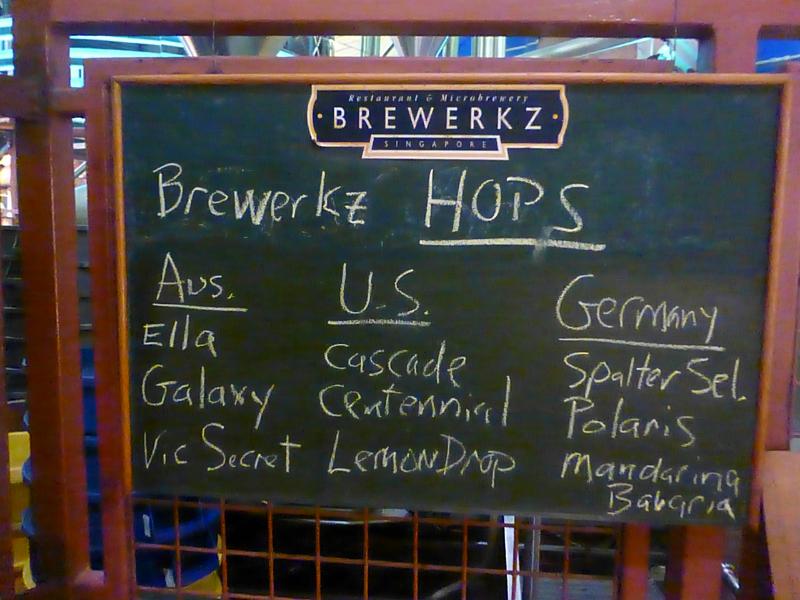 Restaurant & Microbrewery
BREWERKZ
SINGAPORE
Brewerkz HOPS
Aus.
Ella
Galaxy
Vic Secret
U.S.
Cascade
Centennial
LemonDrop
Germany
Spalter Sel.
Polaris
Mandarina
Bavaria